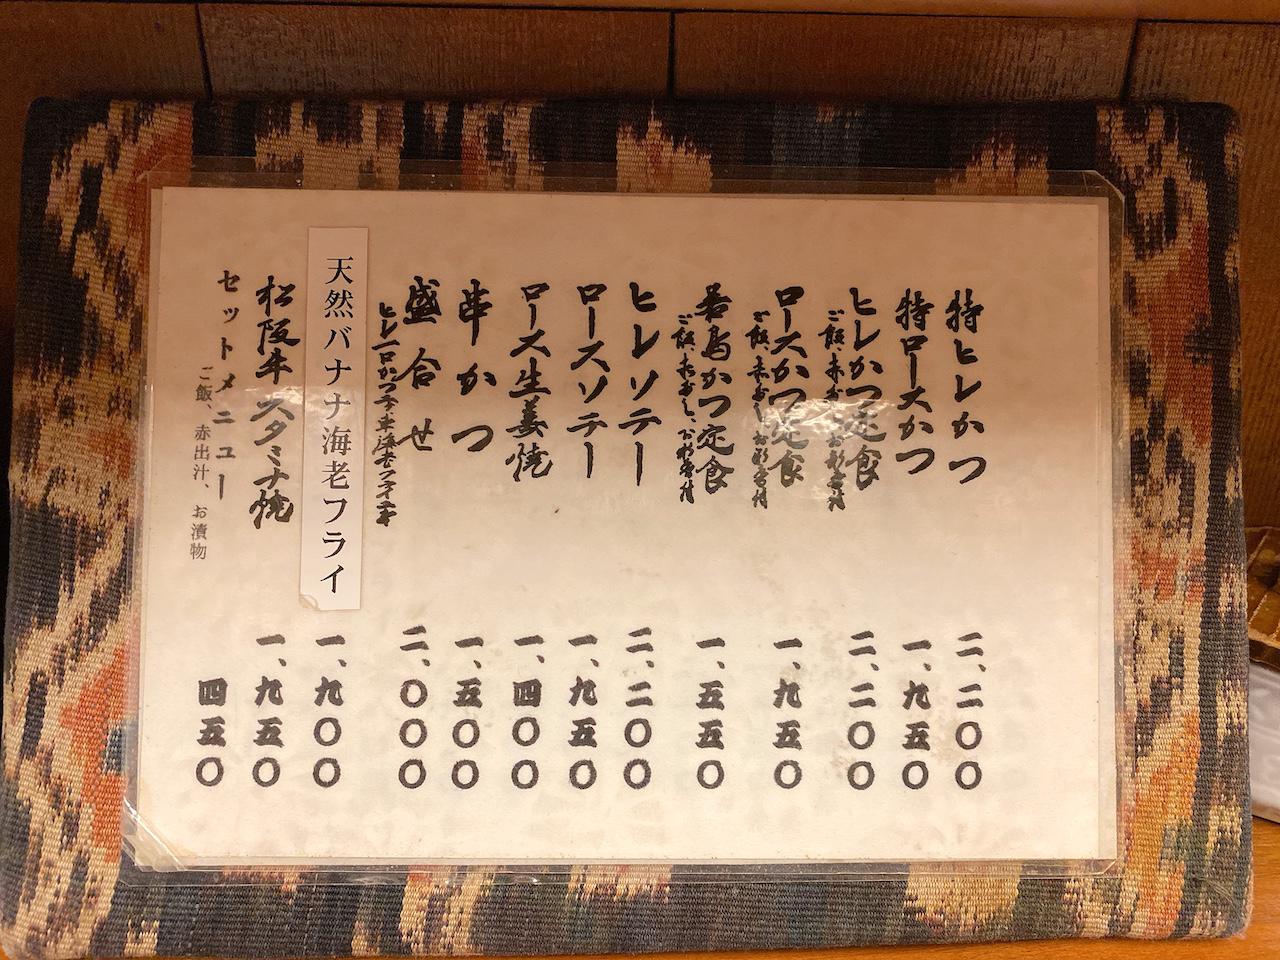 特ヒレかつ 二、二〇〇
特ロースかつ 一、九五〇
ヒレかつ定食 二、二〇〇
ご飯、赤おだし、お新香付
ロースかつ定食 一、九五〇
ご飯、赤おだし、お新香付
若鳥かつ定食 一、五五〇
ご飯、赤おだし、お新香付
ヒレソテー 二、二〇〇
ロースソテー 一、九五〇
ロース生姜焼 一、四〇〇
串かつ 一、五〇〇
盛合せ 二、〇〇〇
天然バナナ海老フライ 一、九〇〇
松阪牛スタミナ焼 一、九五〇
セットメニュー 四五〇
ご飯、赤出汁、お漬物